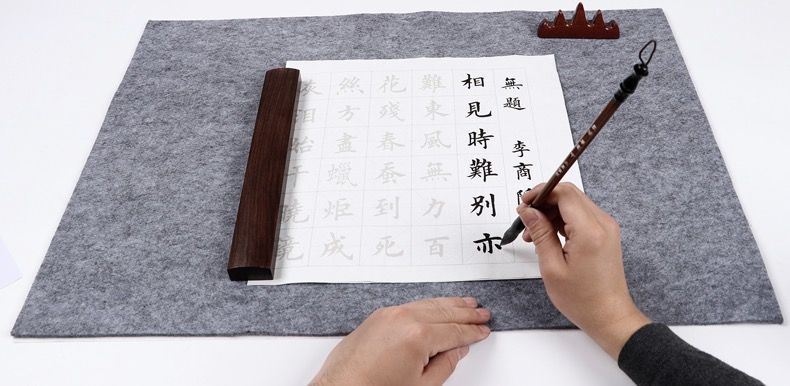 無題 李商
相見時難別亦
難東風無力百
花殘春蚕到死
絲方盡蠟炬成